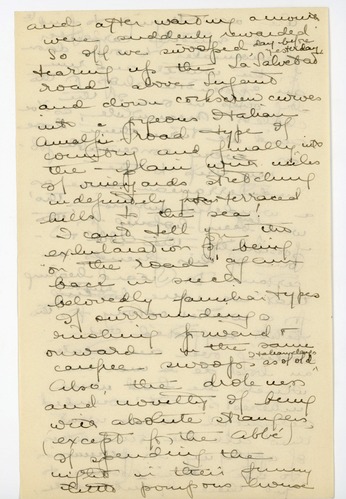 and after waiting a month
were suddenly rewarded.
So off we swooped day before yesterday
tearing up the La Salvetat
road above
and down corkscrew curves
into a Italian
Amalfi road type of
country and finally into
the plain with miles
of vineyards stretching
indefinitely over terraced
hills to the sea!
I can't tell you the
exhilaration of being
on the road again
back in such
belovedly familiar types
of surroundings
rushing forward &
onward in the same
carefree swoops as of old
Also the drollness
and novelty of being
with absolute strangers
(except for the Abbé)
of spending the
night in their funny
little pompous house